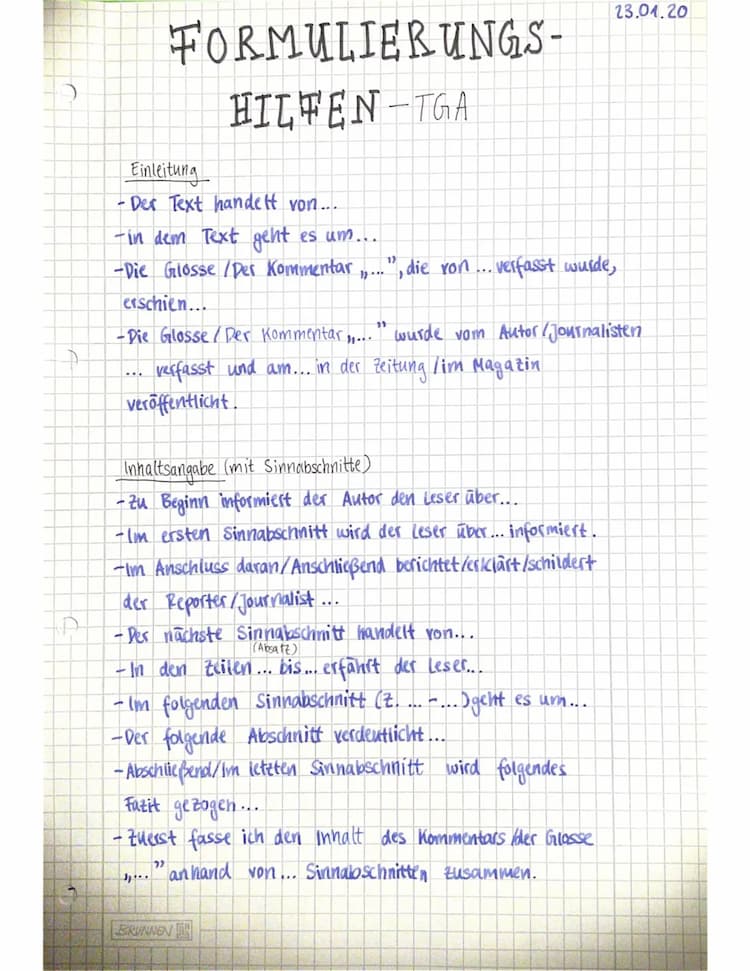 23.01.20
FORMULIERUNGS-
HILFEN - TGA
Einleitung
- Der Text handelt von...
- in dem Text geht es um...
- Die Glosse / Der Kommentar „...", die von ... verfasst wurde,
erschien...
- Die Glosse / Der Kommentar „..." wurde vom Autor / Journalisten
... verfasst und am... in der Zeitung / im Magazin
veröffentlicht.
Inhaltsangabe (mit Sinnabschnitte)
- Zu Beginn informiert der Autor den Leser über...
- Im ersten Sinnabschnitt wird der Leser über... informiert.
- Im Anschluss daran/Anschließend berichtet/erklärt/schildert
der Reporter/Journalist ...
- Der nächste Sinnabschnitt handelt von...
(Absatz)
- In den Zeilen ... bis... erfährt der Leser...
- Im folgenden Sinnabschnitt (Z. ... - ...) geht es um...
- Der folgende Abschnitt verdeutlicht ...
- Abschließend/Im letzten Sinnabschnitt wird folgendes
Fazit gezogen...
- Zuerst fasse ich den Inhalt des Kommentars /der Glosse
„..." anhand von... Sinnabschnitten zusammen.
BRUNNEN